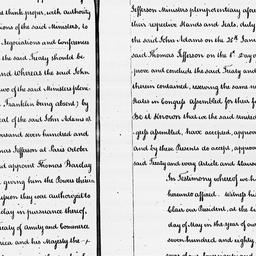 to think proper, with authority
ions of the said Ministers, to
Negociations and Conferences
the said Treaty should be
And whereas the said John
two of the said Ministers pleni-
Franklin being absent) by
eal of the said John Adams at
ousand seven hundred and
mas Jefferson at Paris October
and appoint Thomas Barclay
giving him the Powers therein
upon they was authorized to
day in pursuance thereof,
reaty of Amity and Commerce
rica and his Majesty the
Jefferson Ministers plenipotentiary afores
their respective Hands and Seals, duly
the said John Adams on the 25th Jan
said Thomas Jefferson on the 1st Day o
prove and conclude the said Treaty and
therein contained, reserving the same n
States in Congress Assembled for their f
Be it Known that we the said United
gress Assembled, have accepted, approv
and by these Presents do accept, approv
said Treaty and every Article and Clause
In Testimony whereof we h
hereunto affixed. Witness his
Clair our President, at the
day of May in the year of our
seven hundred and eighty